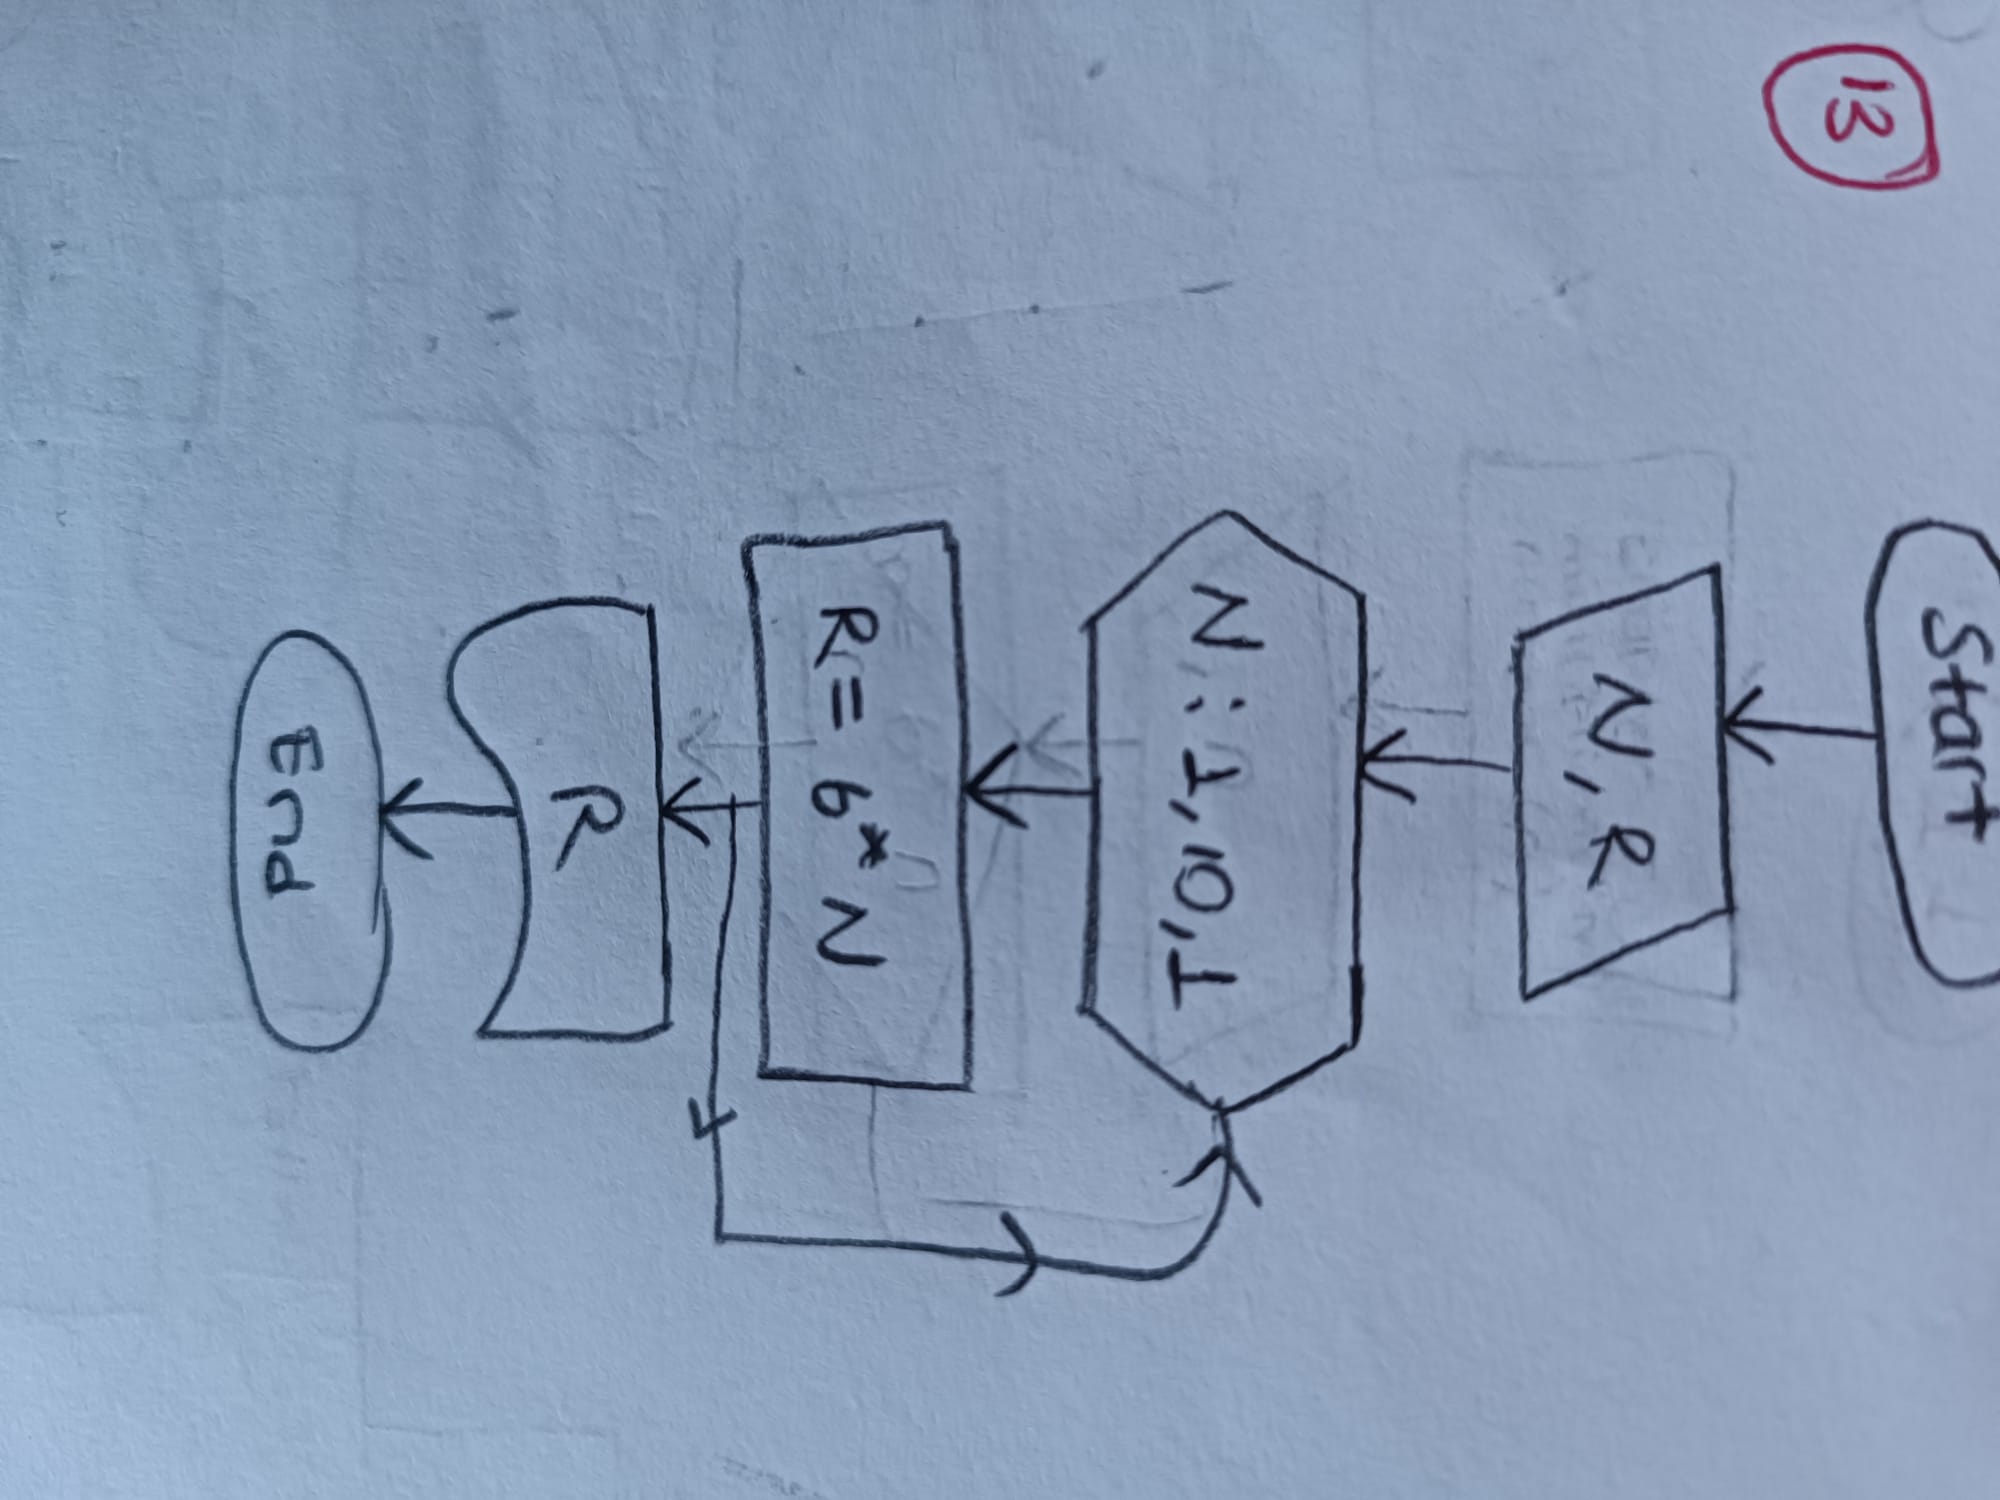 13
Start
N, R
N : 1, 10, 1
R = 6 * N
R
End